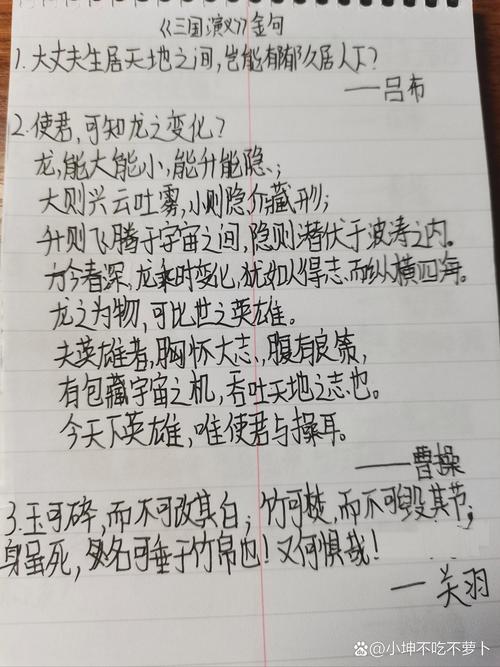 《三国演义》金句
1.大丈夫生居天地之间,岂能郁郁久居人下?
——吕布
2.使君,可知龙之变化?
龙,能大能小,能升能隐;
大则兴云吐雾,小则隐介藏形;
升则飞腾于宇宙之间,隐则潜伏于波涛之内。
方今春深,龙乘时变化,犹如人得志而纵横四海。
龙之为物,可比世之英雄。
夫英雄者,胸怀大志,腹有良策,
有包藏宇宙之机,吞吐天地之志也。
今天下英雄,唯使君与操耳。
——曹操
3.玉可碎,而不可改其白;竹可焚,而不可毁其节;
身虽死,名可垂于竹帛也!又何惧哉!
—关羽
@小坤不吃不萝卜